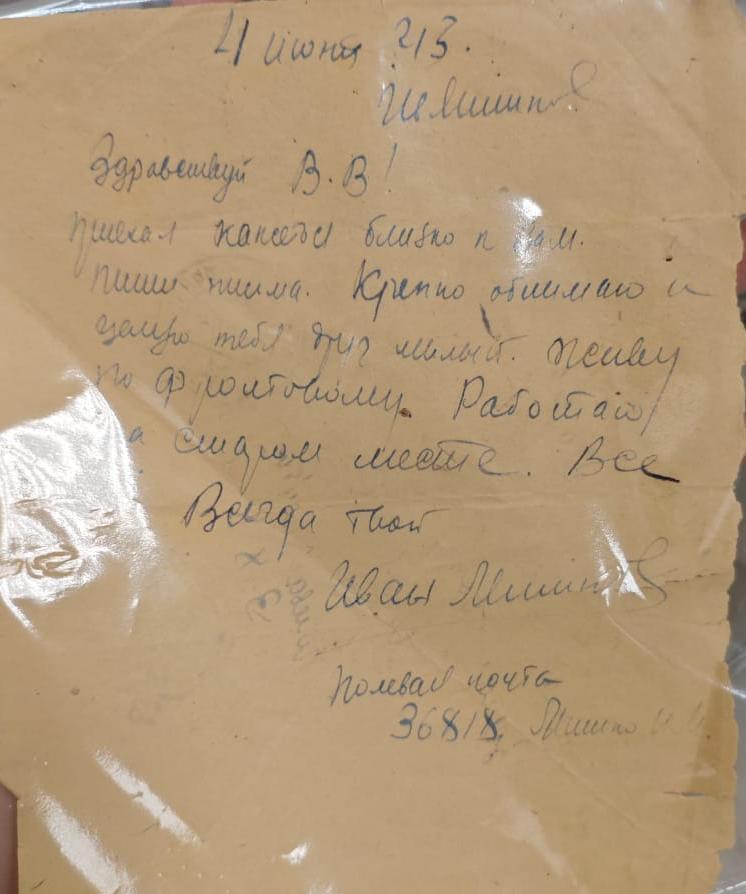 4 июня 43.
Здравствуй В.В!
Приехал кажется близко к вам.
Пиши письма. Крепко обнимаю и
целую тебя друг милый. Живу
по фронтовому. Работаю
на старом месте. Все
Всегда твой
Иван
Полевая почта
36818